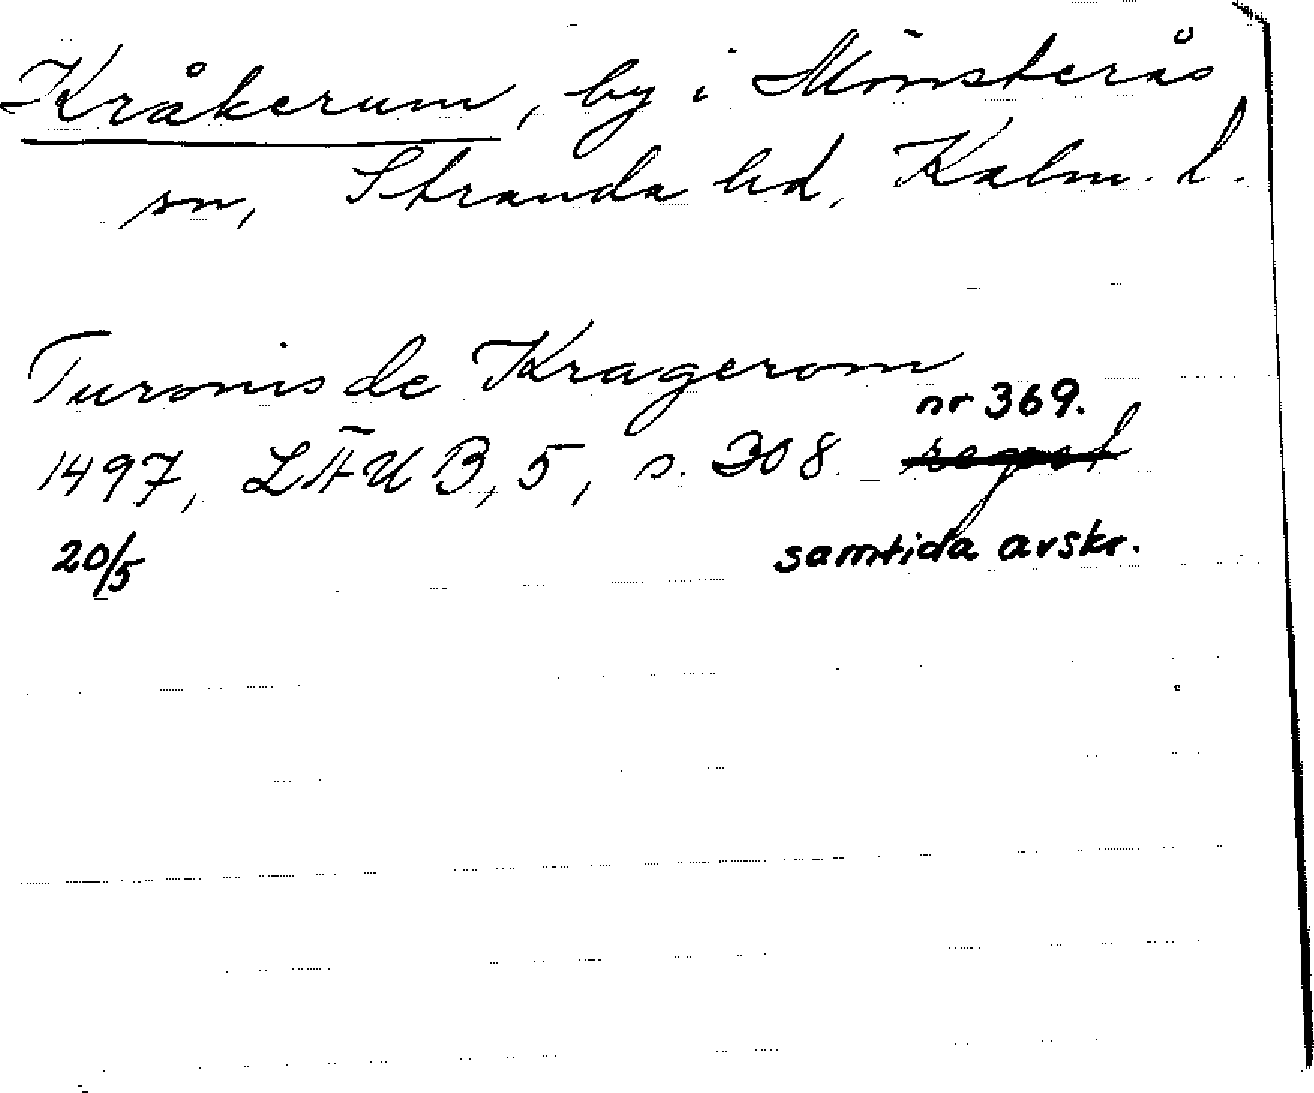 Kråkerum, by i Mönsterås
sn, Stranda hd, Kalm. l.
Turonis de Kragerom
nr 369.
1497, LÄUB, 5, s. 308 regest
20/5 samtida avskr.